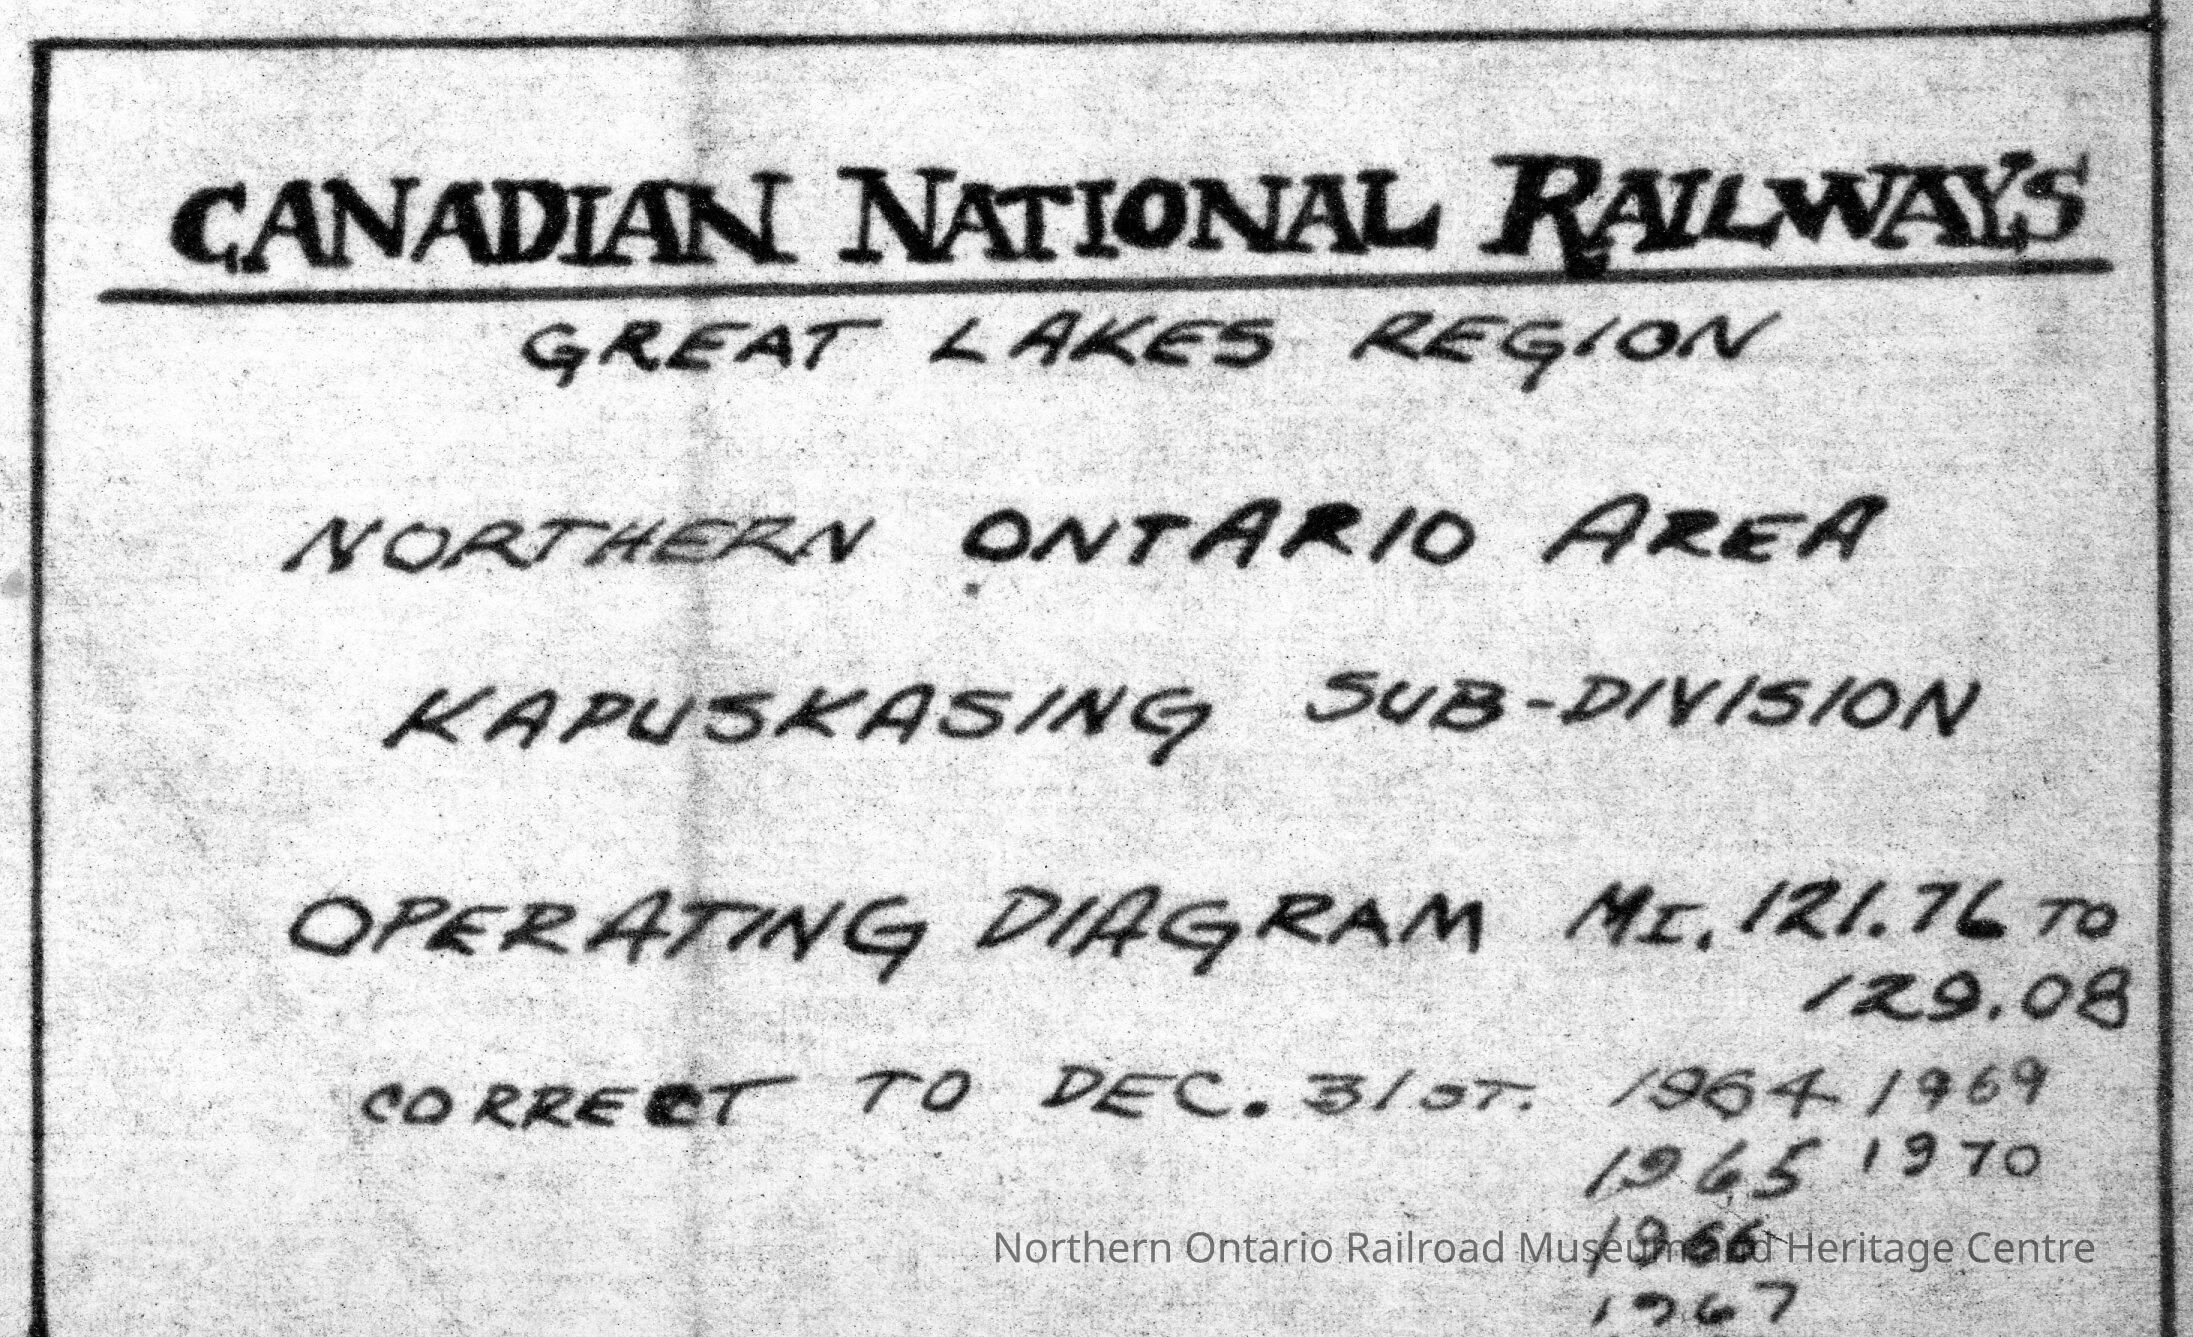 CANADIAN NATIONAL RAILWAYS
GREAT LAKES REGION
NORTHERN ONTARIO AREA
KAPUSKASING SUB-DIVISION
OPERATING DIAGRAM MI. 121.76 TO
129.08
CORRECT TO DEC. 31ST. 1964 1969
1965 1970
1966
Northern Ontario Railroad Museum and Heritage Centre
1967